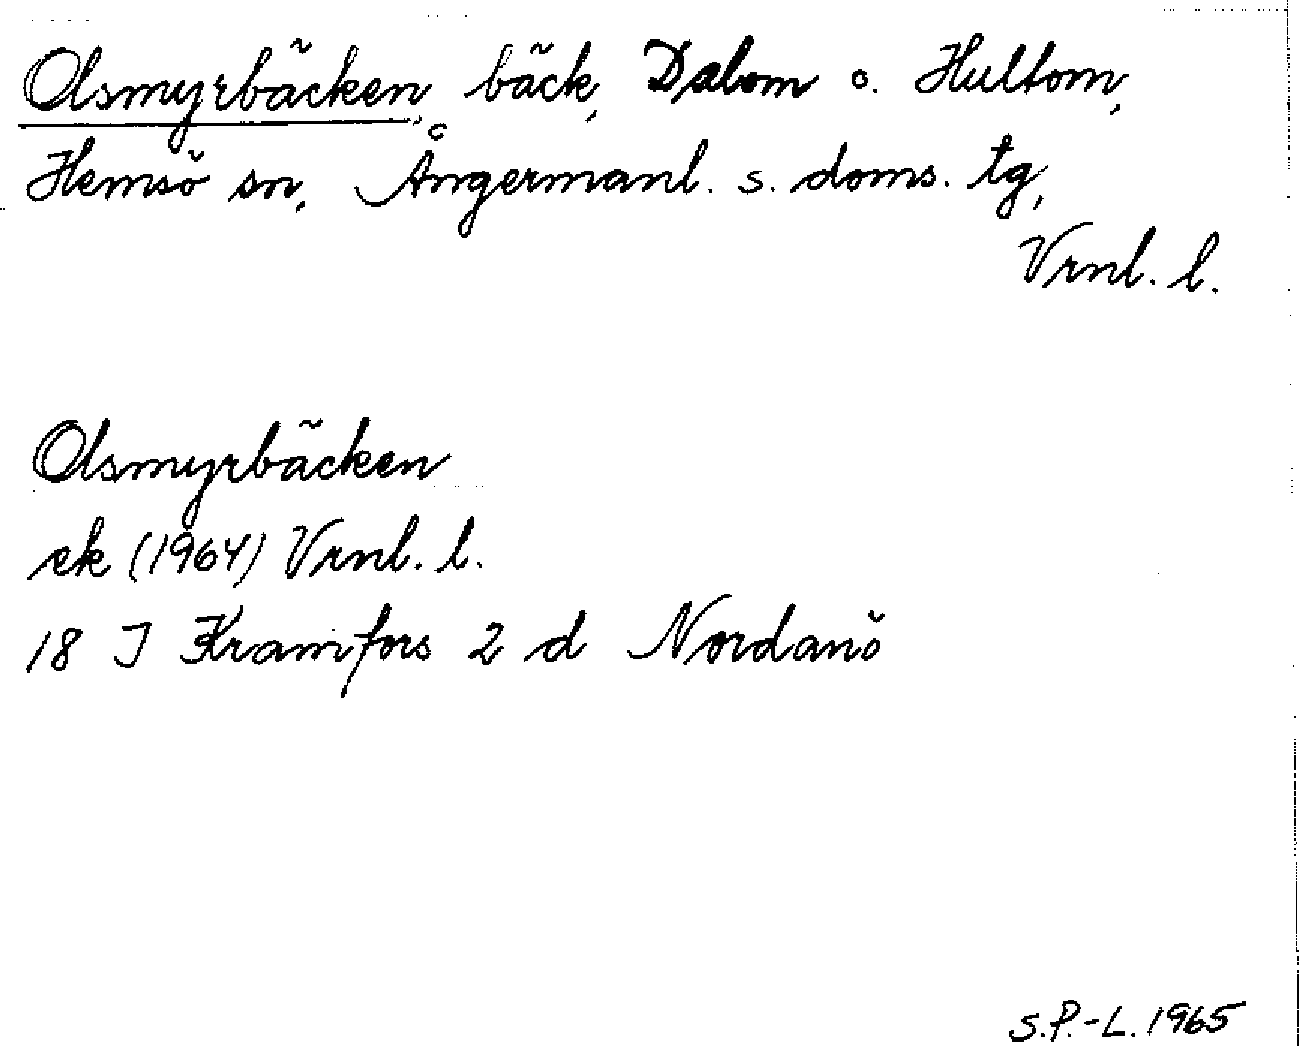 Olsmyrbäcken, bäck, Dalom o. Hultom,
Hemsö sn, Ångermanl. s. doms. tg,
Vrnl. l.
Olsmyrbäcken
ek (1964) Vrnl. l.
18 J Kramfors 2 d Nordanö
S.P.-L. 1965